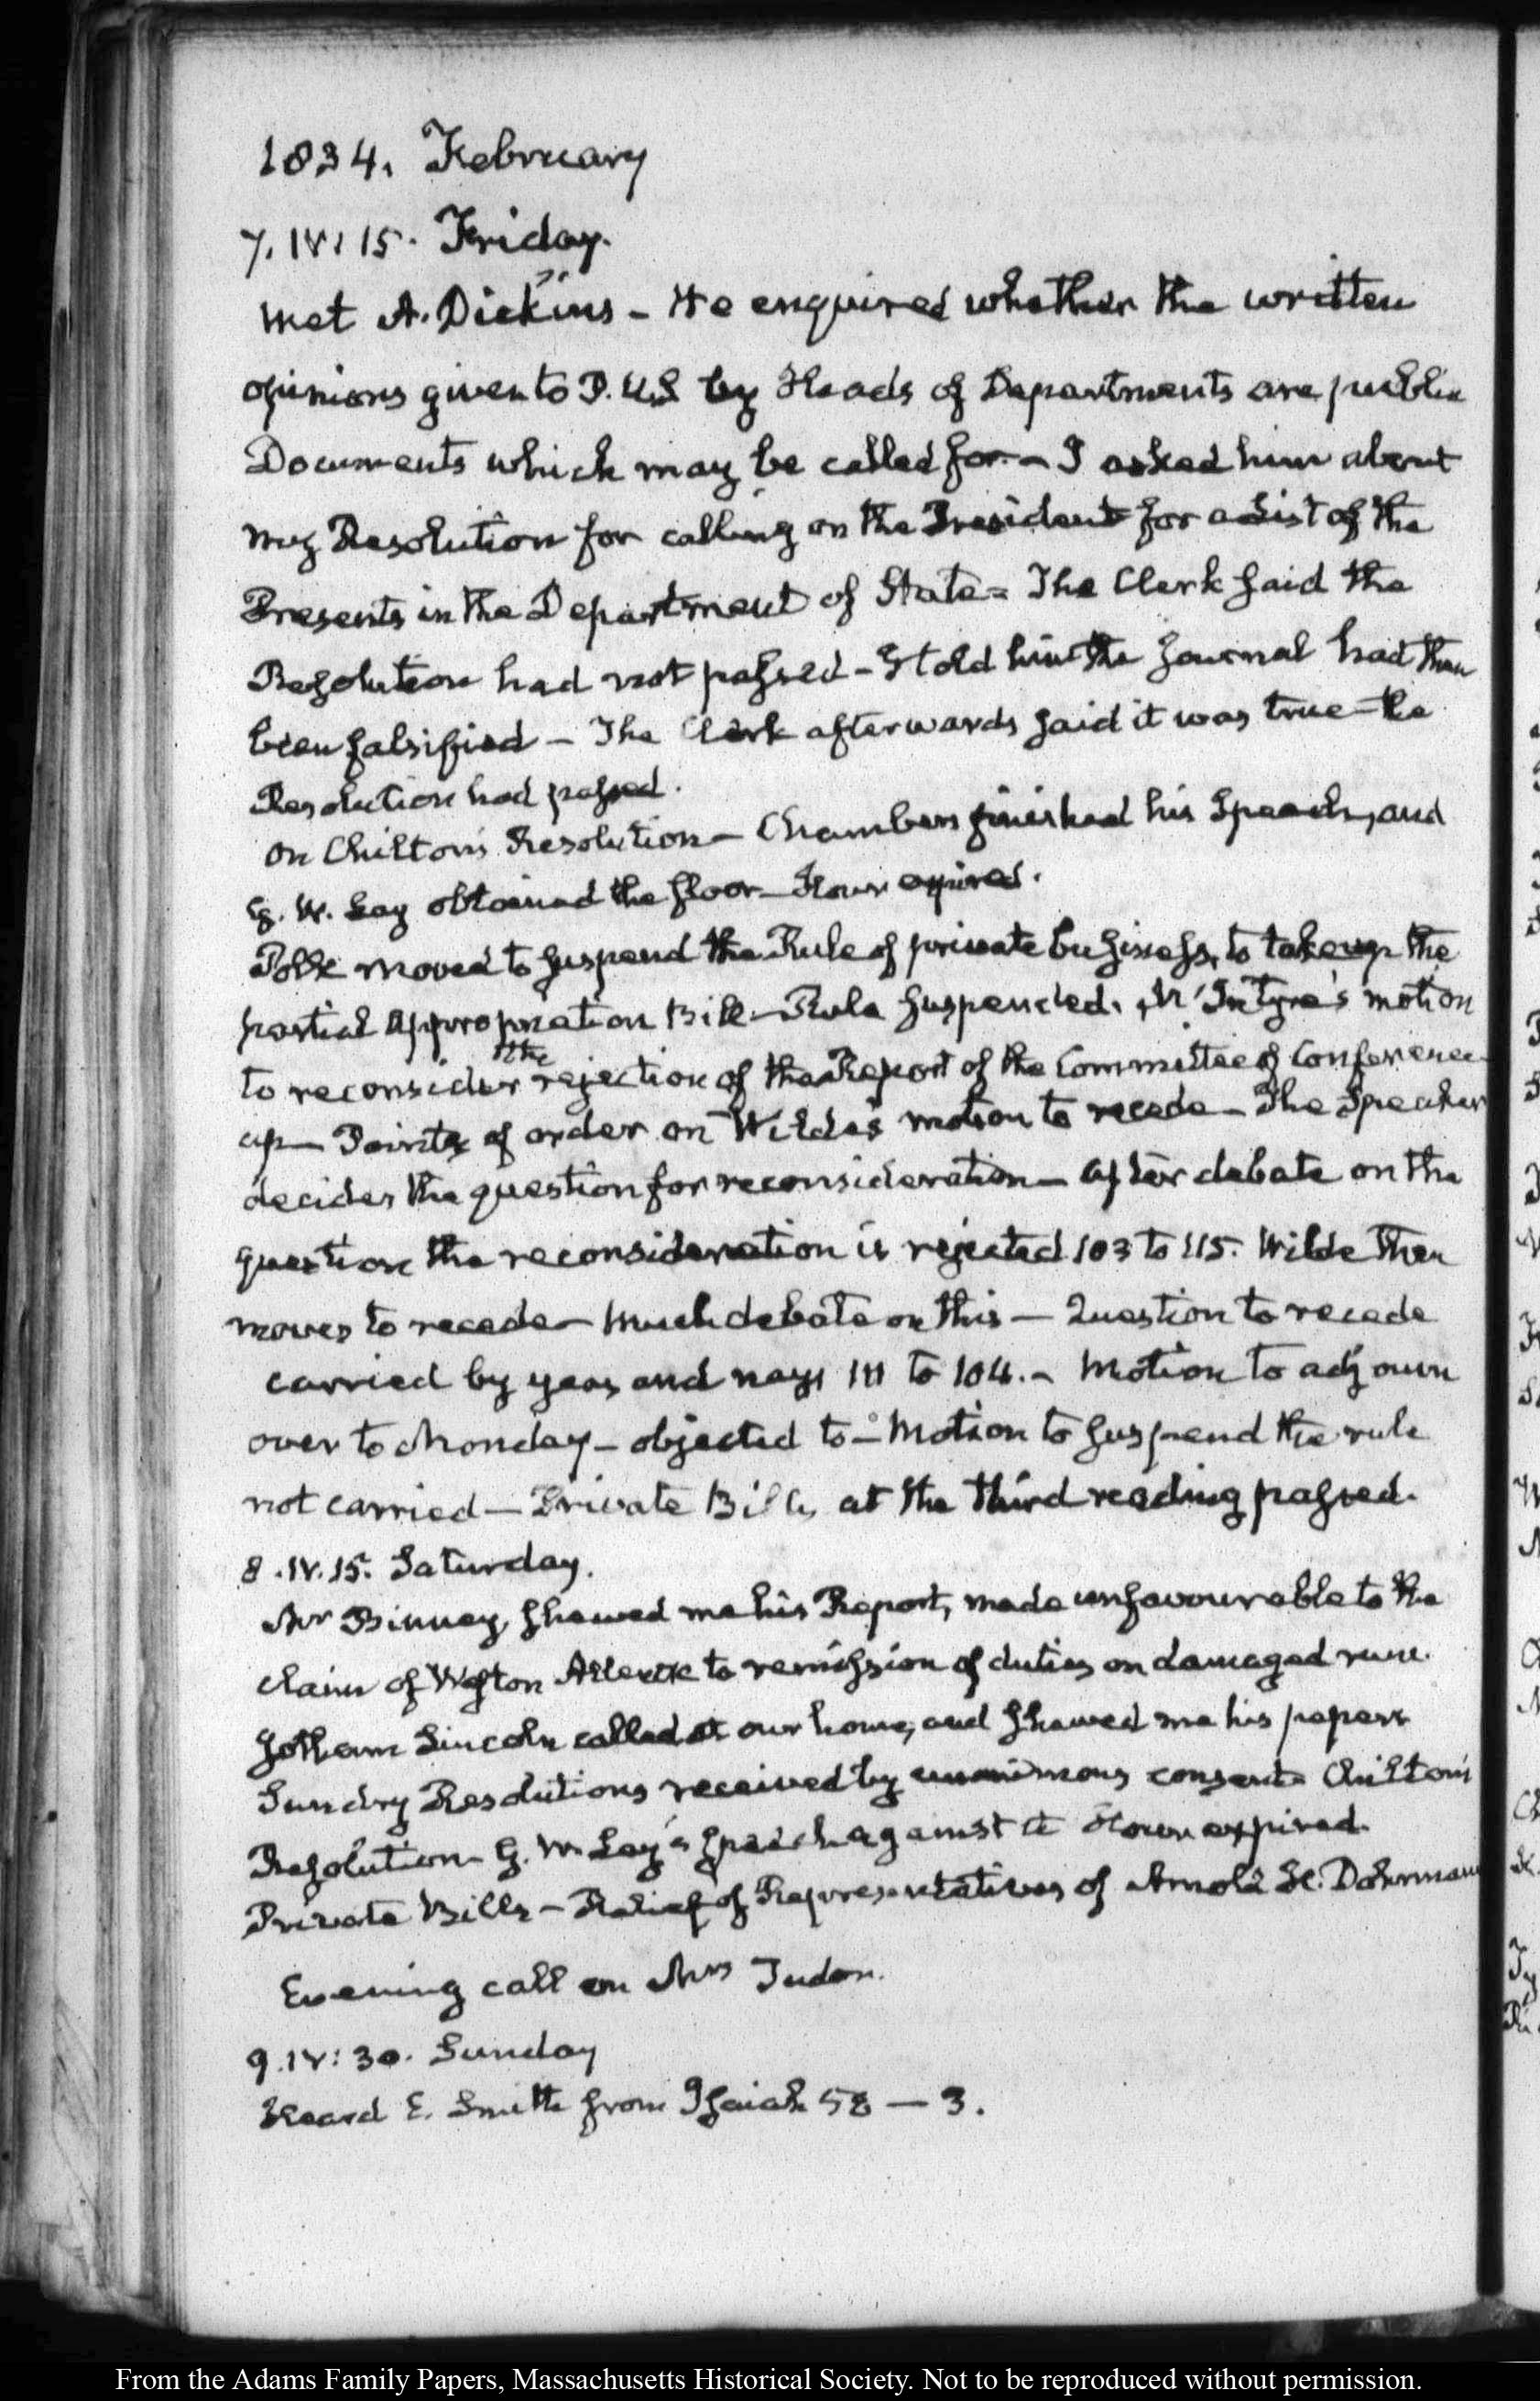 1834. February
7. IV: 15. Friday.
Met A. Dickins – He enquired whether the written
opinions given to P. U.S by Heads of Departments are public
Documents which may be called for. – I asked him about
my Resolution for calling on the President for a List of the
Presents in the Department of State – The Clerk said the
Resolution had not passed – I told him the Journal had then
been falsified – The Clerk afterwards said it was true – the
Resolution had passed.
On Chilton's Resolution – Chambers finished his Speech, and
G. W. Lay obtained the floor – Hour expired.
Polk moved to suspend the Rule of private business, to take up the
partial Appropriation Bill – Rule suspended. McIntyre's motion
to reconsider the rejection of the Report of the Committee of Conference
up – Points of order on Wilde's motion to recede – The Speaker
decides the question for reconsideration – After debate on the
question the reconsideration is rejected 103 to 115. Wilde then
moves to recede – Much debate on this – Question to recede
carried by yeas and nays 111 to 104. – Motion to adjourn
over to Monday – objected to – Motion to suspend the rule
not carried – Private Bills at the third reading passed.
8. IV. 15. Saturday.
Mr Binney shewed me his Report, made unfavourable to the
claim of to remission of duties on damaged
Jotham Lincoln called at our house, and shewed me his papers
Sundry Resolutions received by unanimous consent Chilton's
Resolution – G. W. Lay's speech against it Hour expired.
Private Bills – Relief of Representatives of Arnold H. Dohrman
Evening call on Mrs Tudor.
9. IV: 30. Sunday
Heard E. Smith from Isaiah 58 – 3.
From the Adams Family Papers, Massachusetts Historical Society. Not to be reproduced without permission.